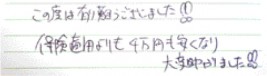 この度は有り難うございました!!
保険適用よりも4万円も安くなり
大変助かりました!!